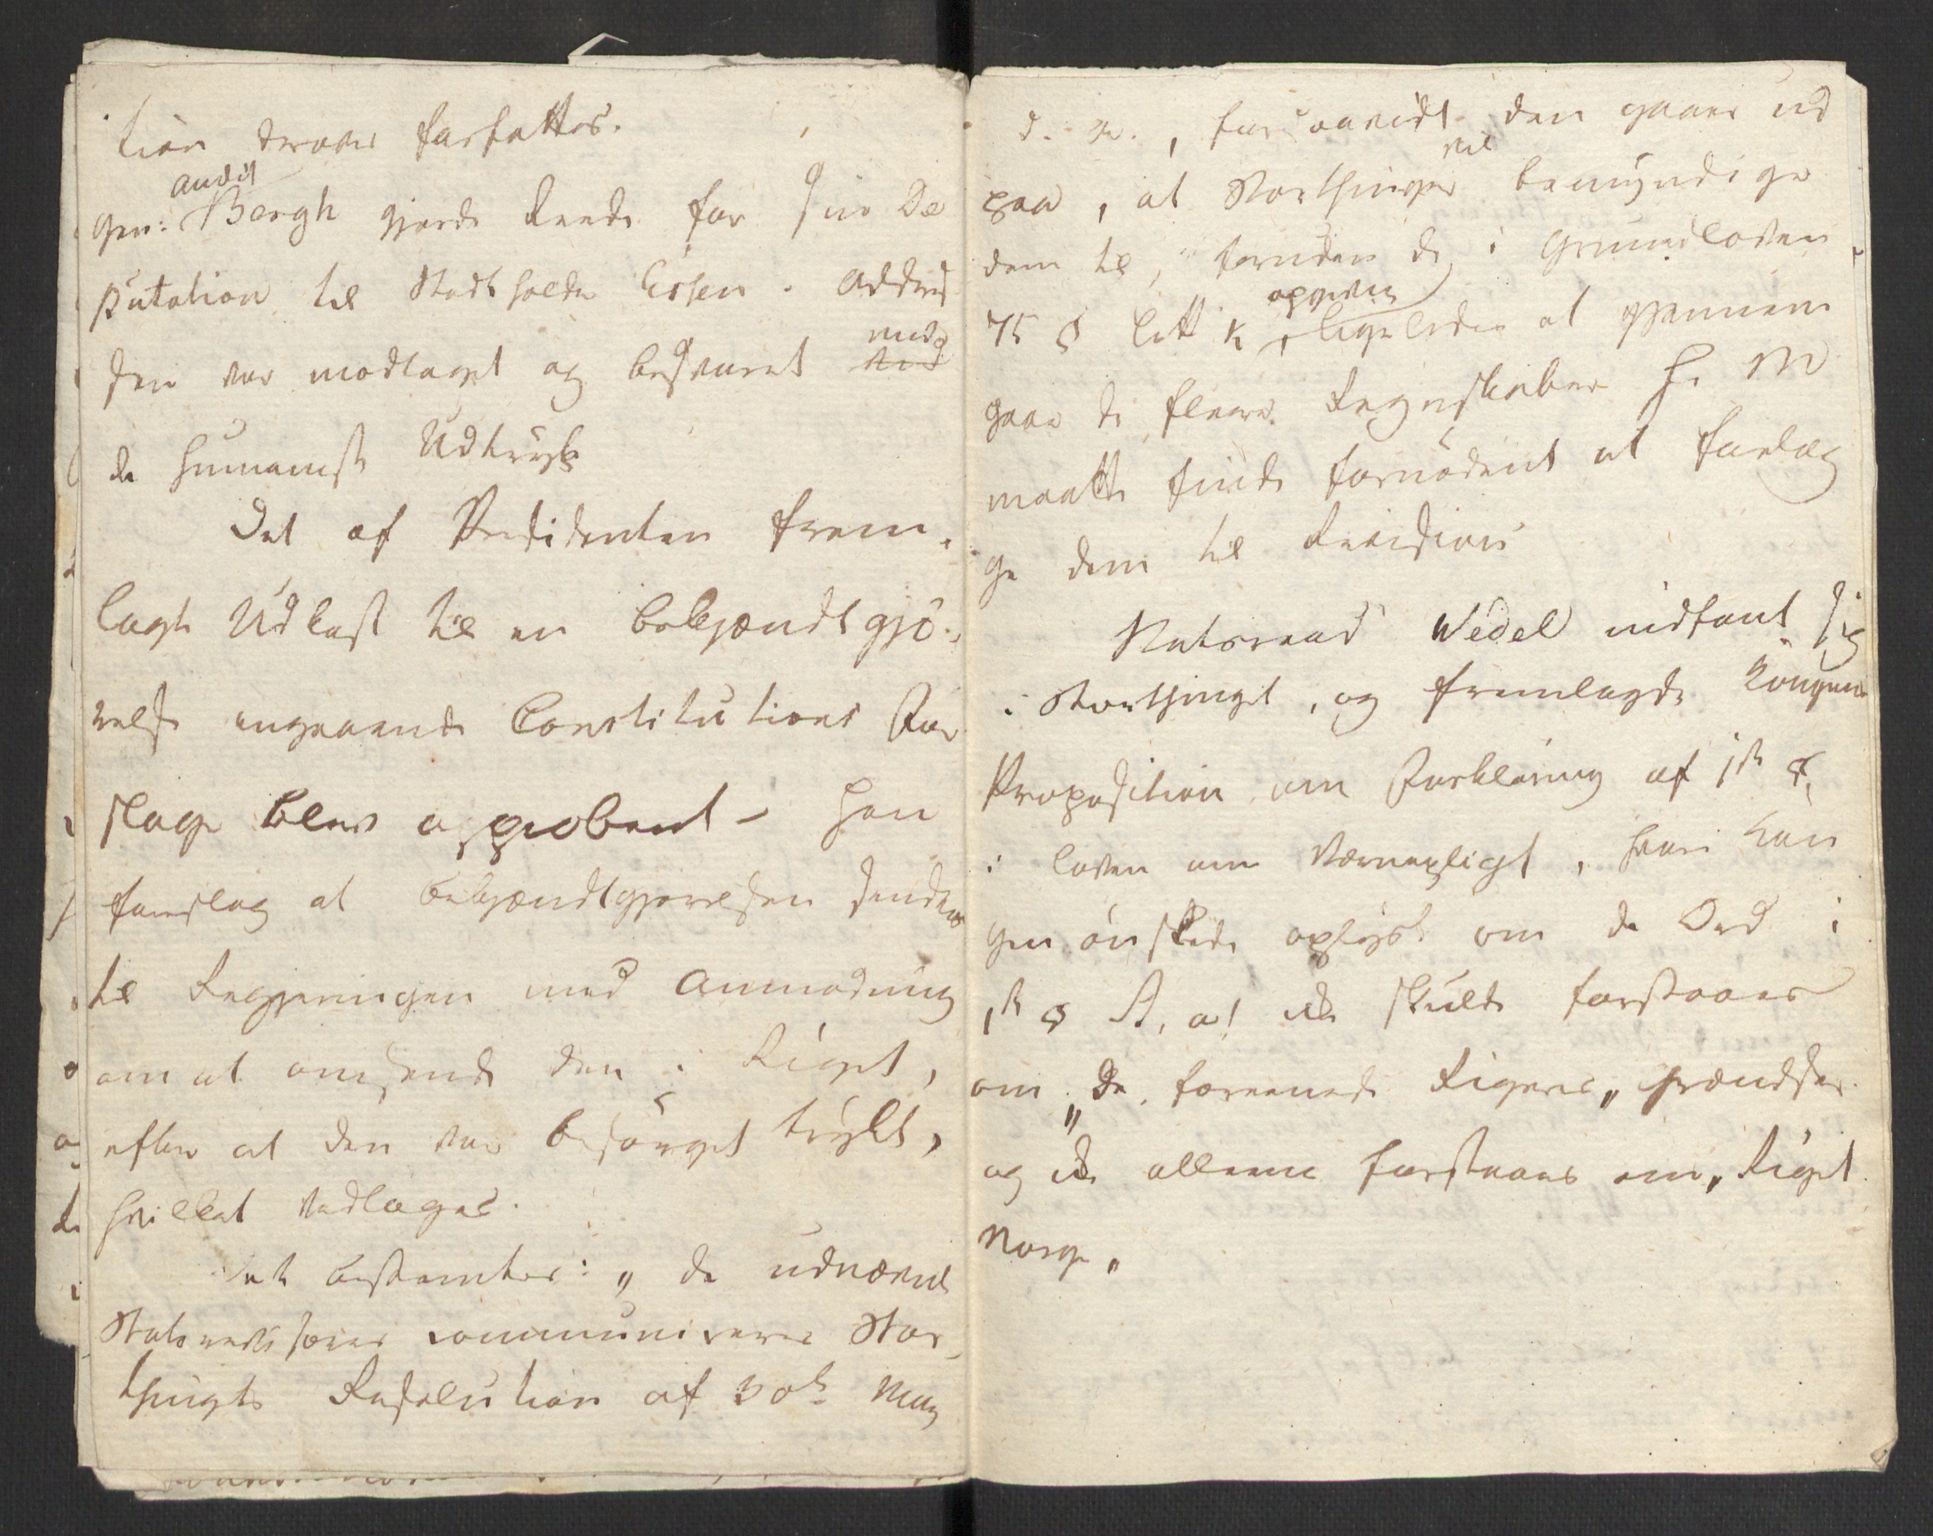 tion derover forfattes.
Audit
Gen: Bergh gjorde Rede for sin De
putation til Statholder Essen. Addres
sen var modtaget og besvaret med
de humaneste Udtryk
Det af Præsidenten frem-
lagte Udkast til en bekjændtgjö-
relse angaaende Constitutions For
slage blev approberet – Han
foreslog at bekjændtgjørelsen sendes
til Regjeringen med Anmodning
om at omsende den i Riget,
efter at den var besörget trykt,
hvilket vedtoges.
bestemtes: „ de udnævnte
Statsrevisorer communiceres Stor
thingets Resolution af 30te May
d. A., forsaavidt den gaaer ud
paa, at Storthinget vil bemyndige
dem til, foruden de i Grundloven
75 § Litt K opgivne, ligeledes at gjennem
gaae de flere Regnskaber H. M
maatte finde fornödent at forelæg
ge dem til Revision
Statsraad Wedel indfant sig
i Storthinget, og fremlagde Kongens
Proposition om Forklaring af 1ste §
i Loven om Værnepligt, hvori Kon
gen önskede oplyst om de Ord i
1ste § A, at ikke skulde forstaaes
om „De forenede Rigers„ Grændser
og ikke alleene forstaaes om „Riget
Norge„